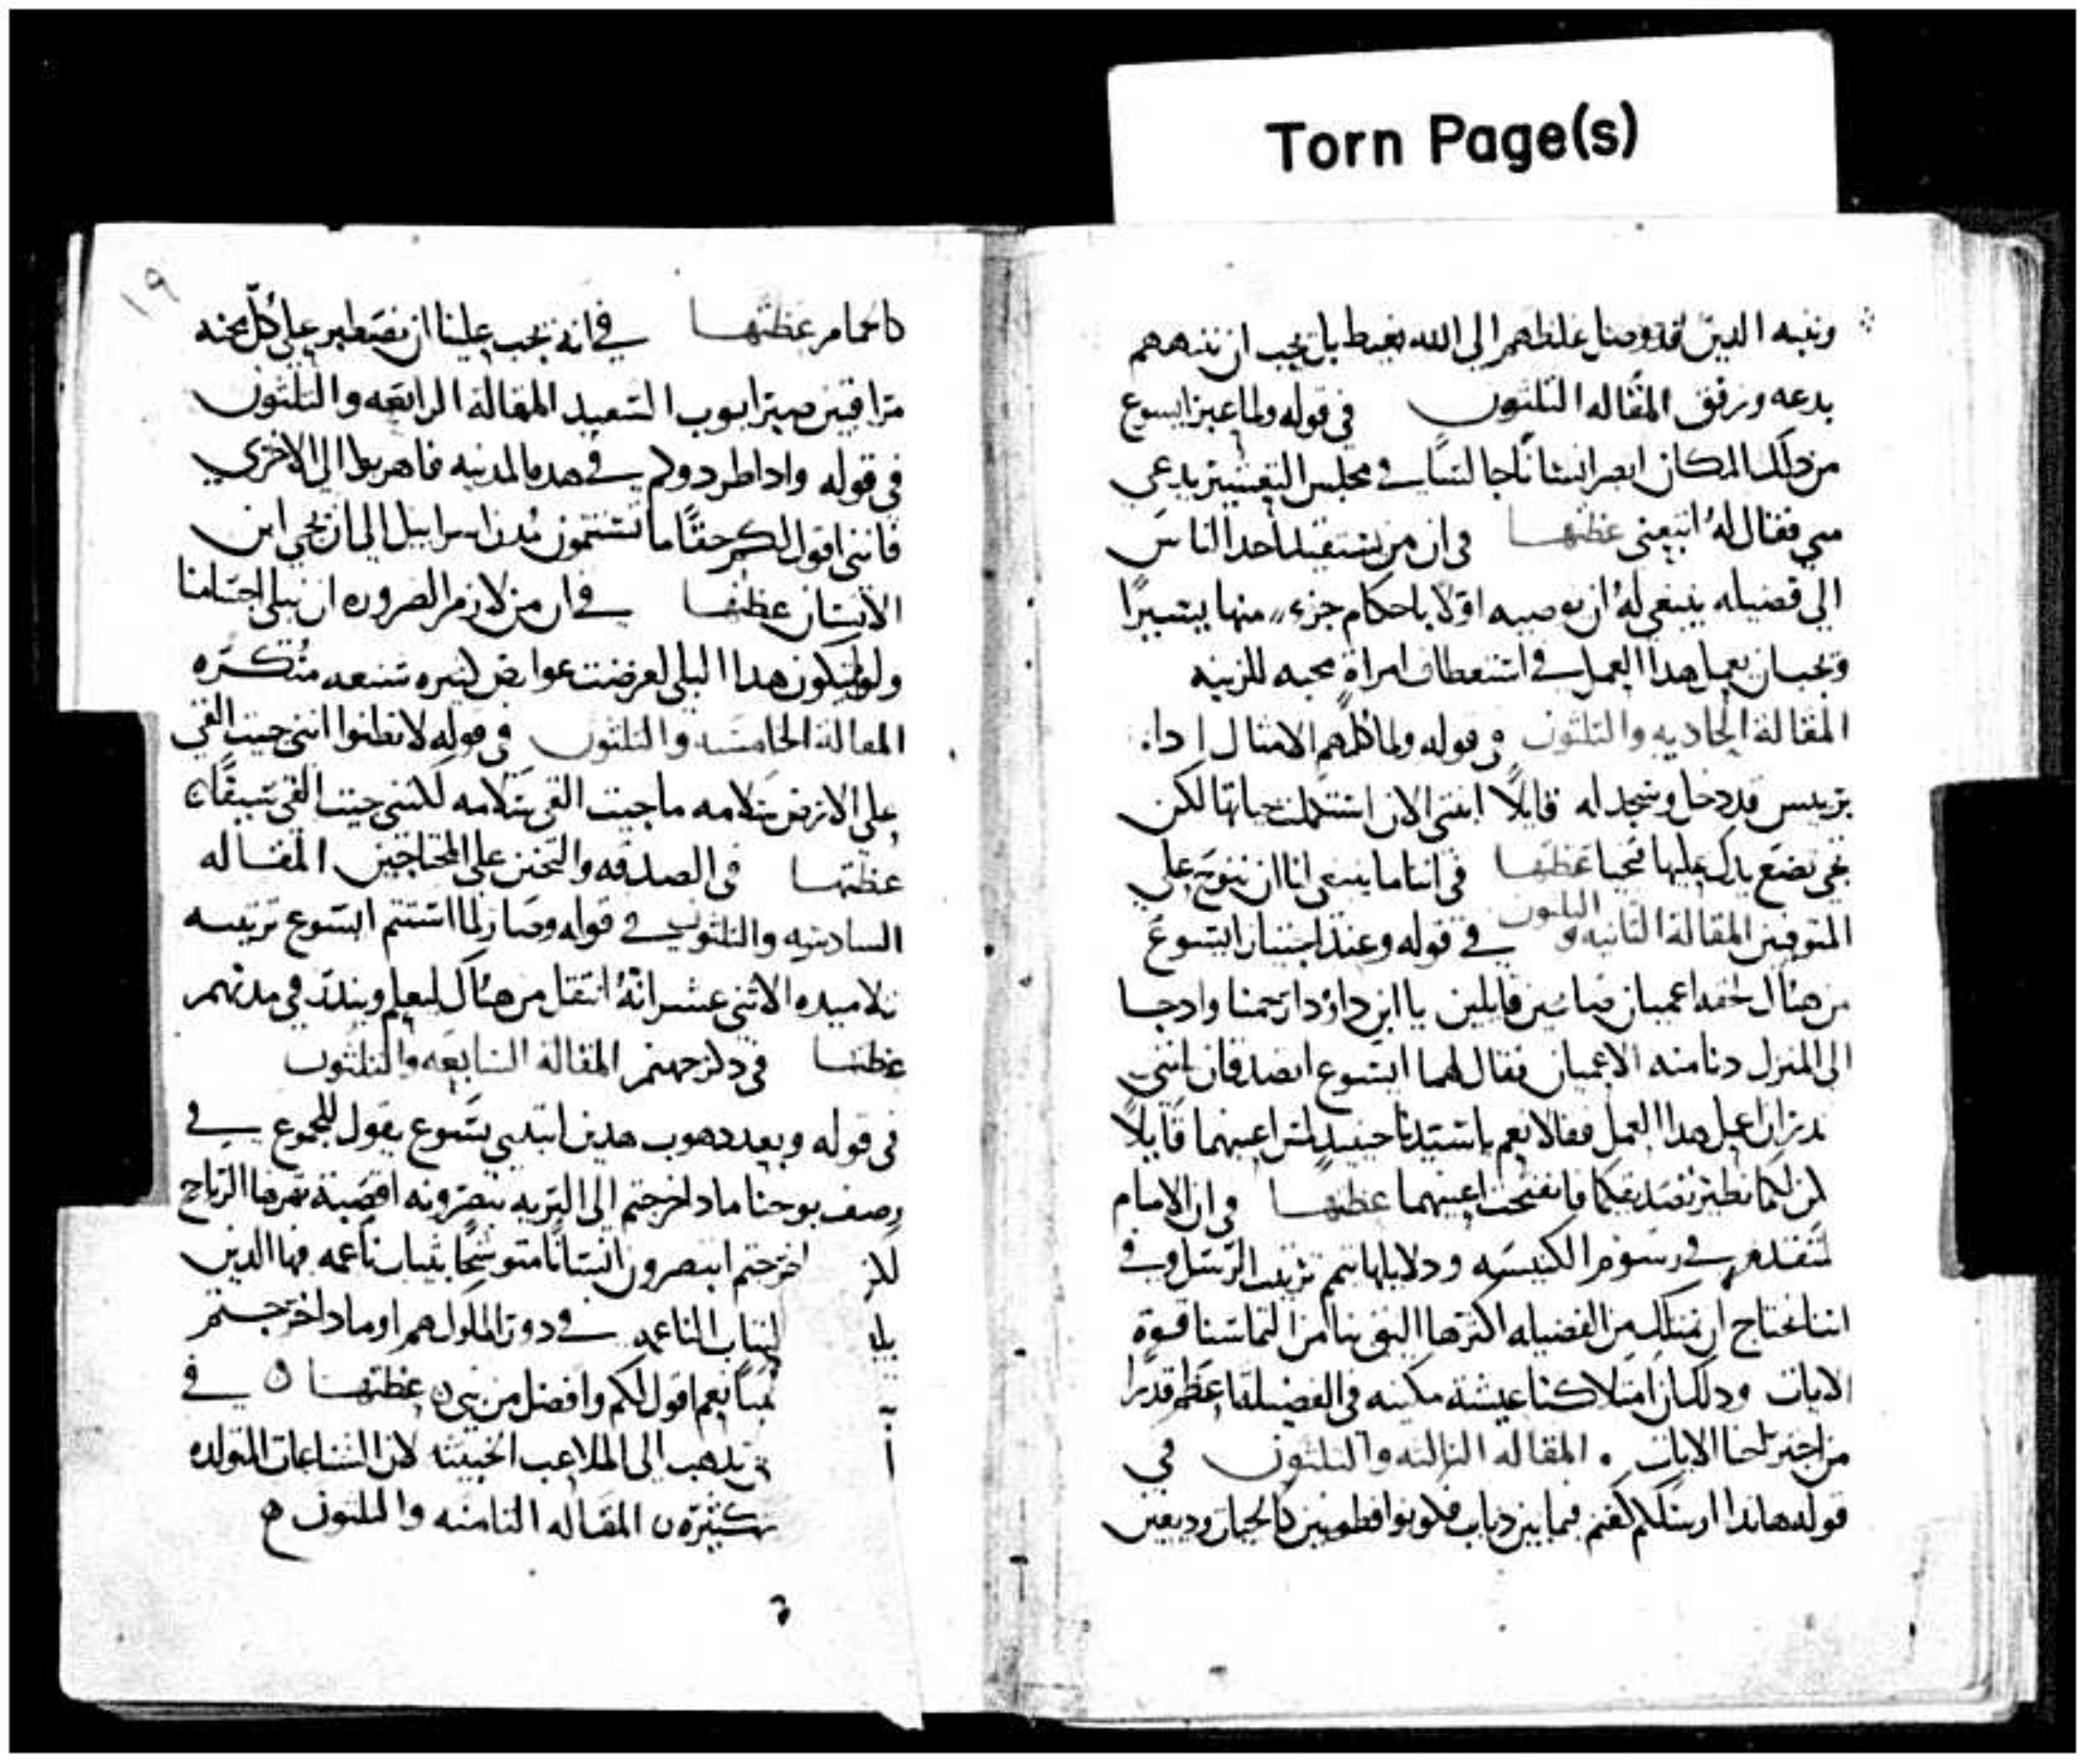 Torn Page(s)
ونبه الدين قد وصل غلطهم الى الله بغيط بل يجب ان ننههم
بدعه ورفق المقاله التلتون في قوله ولما عبر ايسوع
من دلك المكان ابصر انسانًا جالسًا في مجلس التعشير يدعى
متي فقال لهُ اتبعني عظتها في ان من يستفيد احد الناس
الي فضيله ينبغي لهُ ان يوصيه اوّلا باحكام جزء منها يسيرًا
ويجب ان يعمل هدا العمل في استعطاف امراةٍ محبه للزينه
المقالة الحاديه والتلتون في قوله ولما كلمهم الامتال ادا
بريس قد دخل وسجد له قايلًا ابنتي الان استكملت حياتها لكن
تجي تضع يدك عليها فتحيا عظتها في اننا ما ينبغي لنا ان ننوح علي
المتوفين المقالة التانيه والتلتون في قوله وعند اجتياز ايسوع
من هناك لحقه اعميان صايحين قايلين يا ابن داوُد ارحمنا واد جا
الى المنزل دنا منه الاعميان فقال لهما ايسوع اتصدقان انني
قدر ان اعمل هدا العمل فقالا نعم يا سيدنا حينيدٍ لمس اعينهما قايلًا
ليكن لكما نظير تصديقكما فانفتحت اعينهما عظتها في ان الامام
لتقدم في رسوم الكنيسه ودلايلها تم ترتيب الرسل وفي
اننا نحتاج ان نمتلك من الفضيله اكترها اليق بنا من التماسنا قوة
الايات ودلك ان امتلاكنا عيشة مكينه في الفضيله اعظم قدرًا
من اجتراحنا الايات . المقاله التالته والتلتون في
قوله هاندا ارسلكم كغنم فيما بين دياب فكونوا فطونين كالحيات وديعين
١٩
كالحمام عظتها في انهُ يجب علينا ان نصطبر علي كلّ محنه
مراقبين صبر ايوب السعيد المقالة الرابعه والتلتون
في قوله وادا طردوكم في هده المدينه فاهربوا الى الاخرى
فانني اقول لكم حقًا ما تستتمون مُدن اسراييل الى ان يجي ابن
الانسان عظتها في ان من لازم الضروره ان تبلى اجسامنا
ولو لم يكون هدا البلى لعرضت عوارض كتيره شنعه منُكره
المقالة الخامسه والتلتون في قوله لا تظنوا انني جيت القي
على الارض سلامه ما جيت القي سلامه لكنني جيت القي سيفًا
عظتها في الصدقه والتحنن على المحتاجين المقاله
السادسه والتلتون في قوله وصار لما استتم ايسوع ترتيبه
تلاميده الاتني عشر انهُ انتقل من هناك ليعلم وينادي في مدنهم
عظتها في دكر جهنم المقاله السابعه والتلتون
في قوله وبعد دهوب هدين ابتدي يسوع يقول للجموع في
وصف يوحنا مادا خرجتم الى البريه تبصرونه اقصبة تهزها الرياح
لكن اخرجتم ابتصرون انسانًا متوشحًا بتياب ناعمه فها الدين
يلبـ التياب الناعمه في دور الملوك هم او مادا خرجتم
نبيًا نعم اقول لكم وافضل من نبي عظتها في
ا يدهب الى الملاعب الخبيته لان الشناعات المتولده
كتيره المقاله التامنه والتلتون